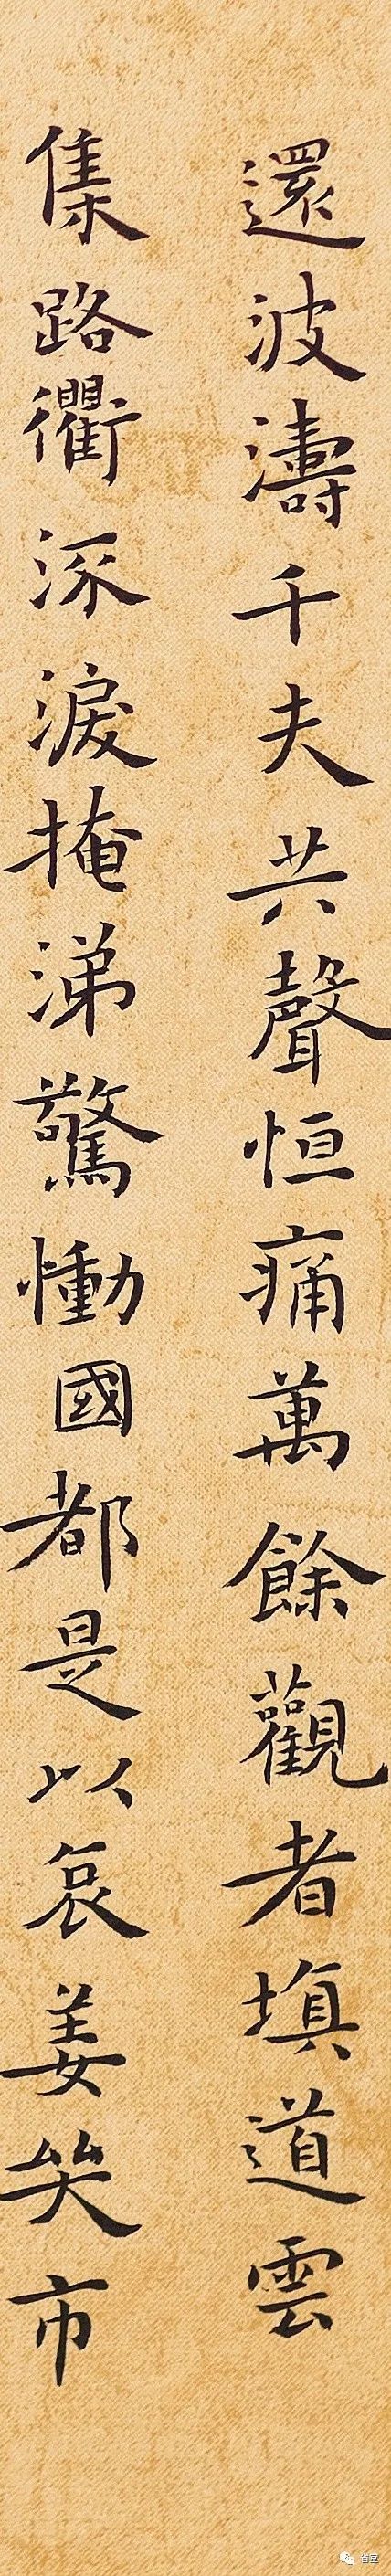 還波濤千夫共聲恒痛萬餘觀者填道雲
集路衢流淚掩涕驚慟國都是以哀姜哭市